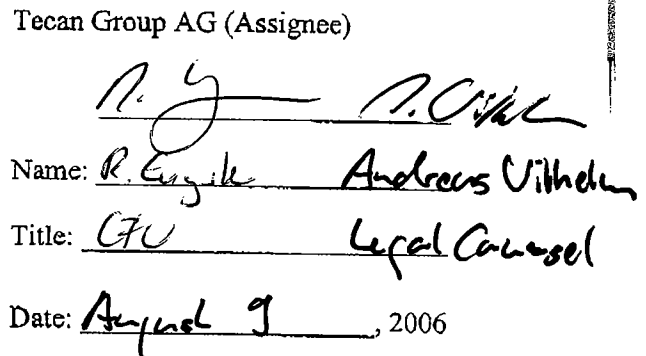 Tecan Group AG (Assignee)
Name: R. Andreas Wilhelm
Title: CFO Legal Counsel
Date: August 9, 2006